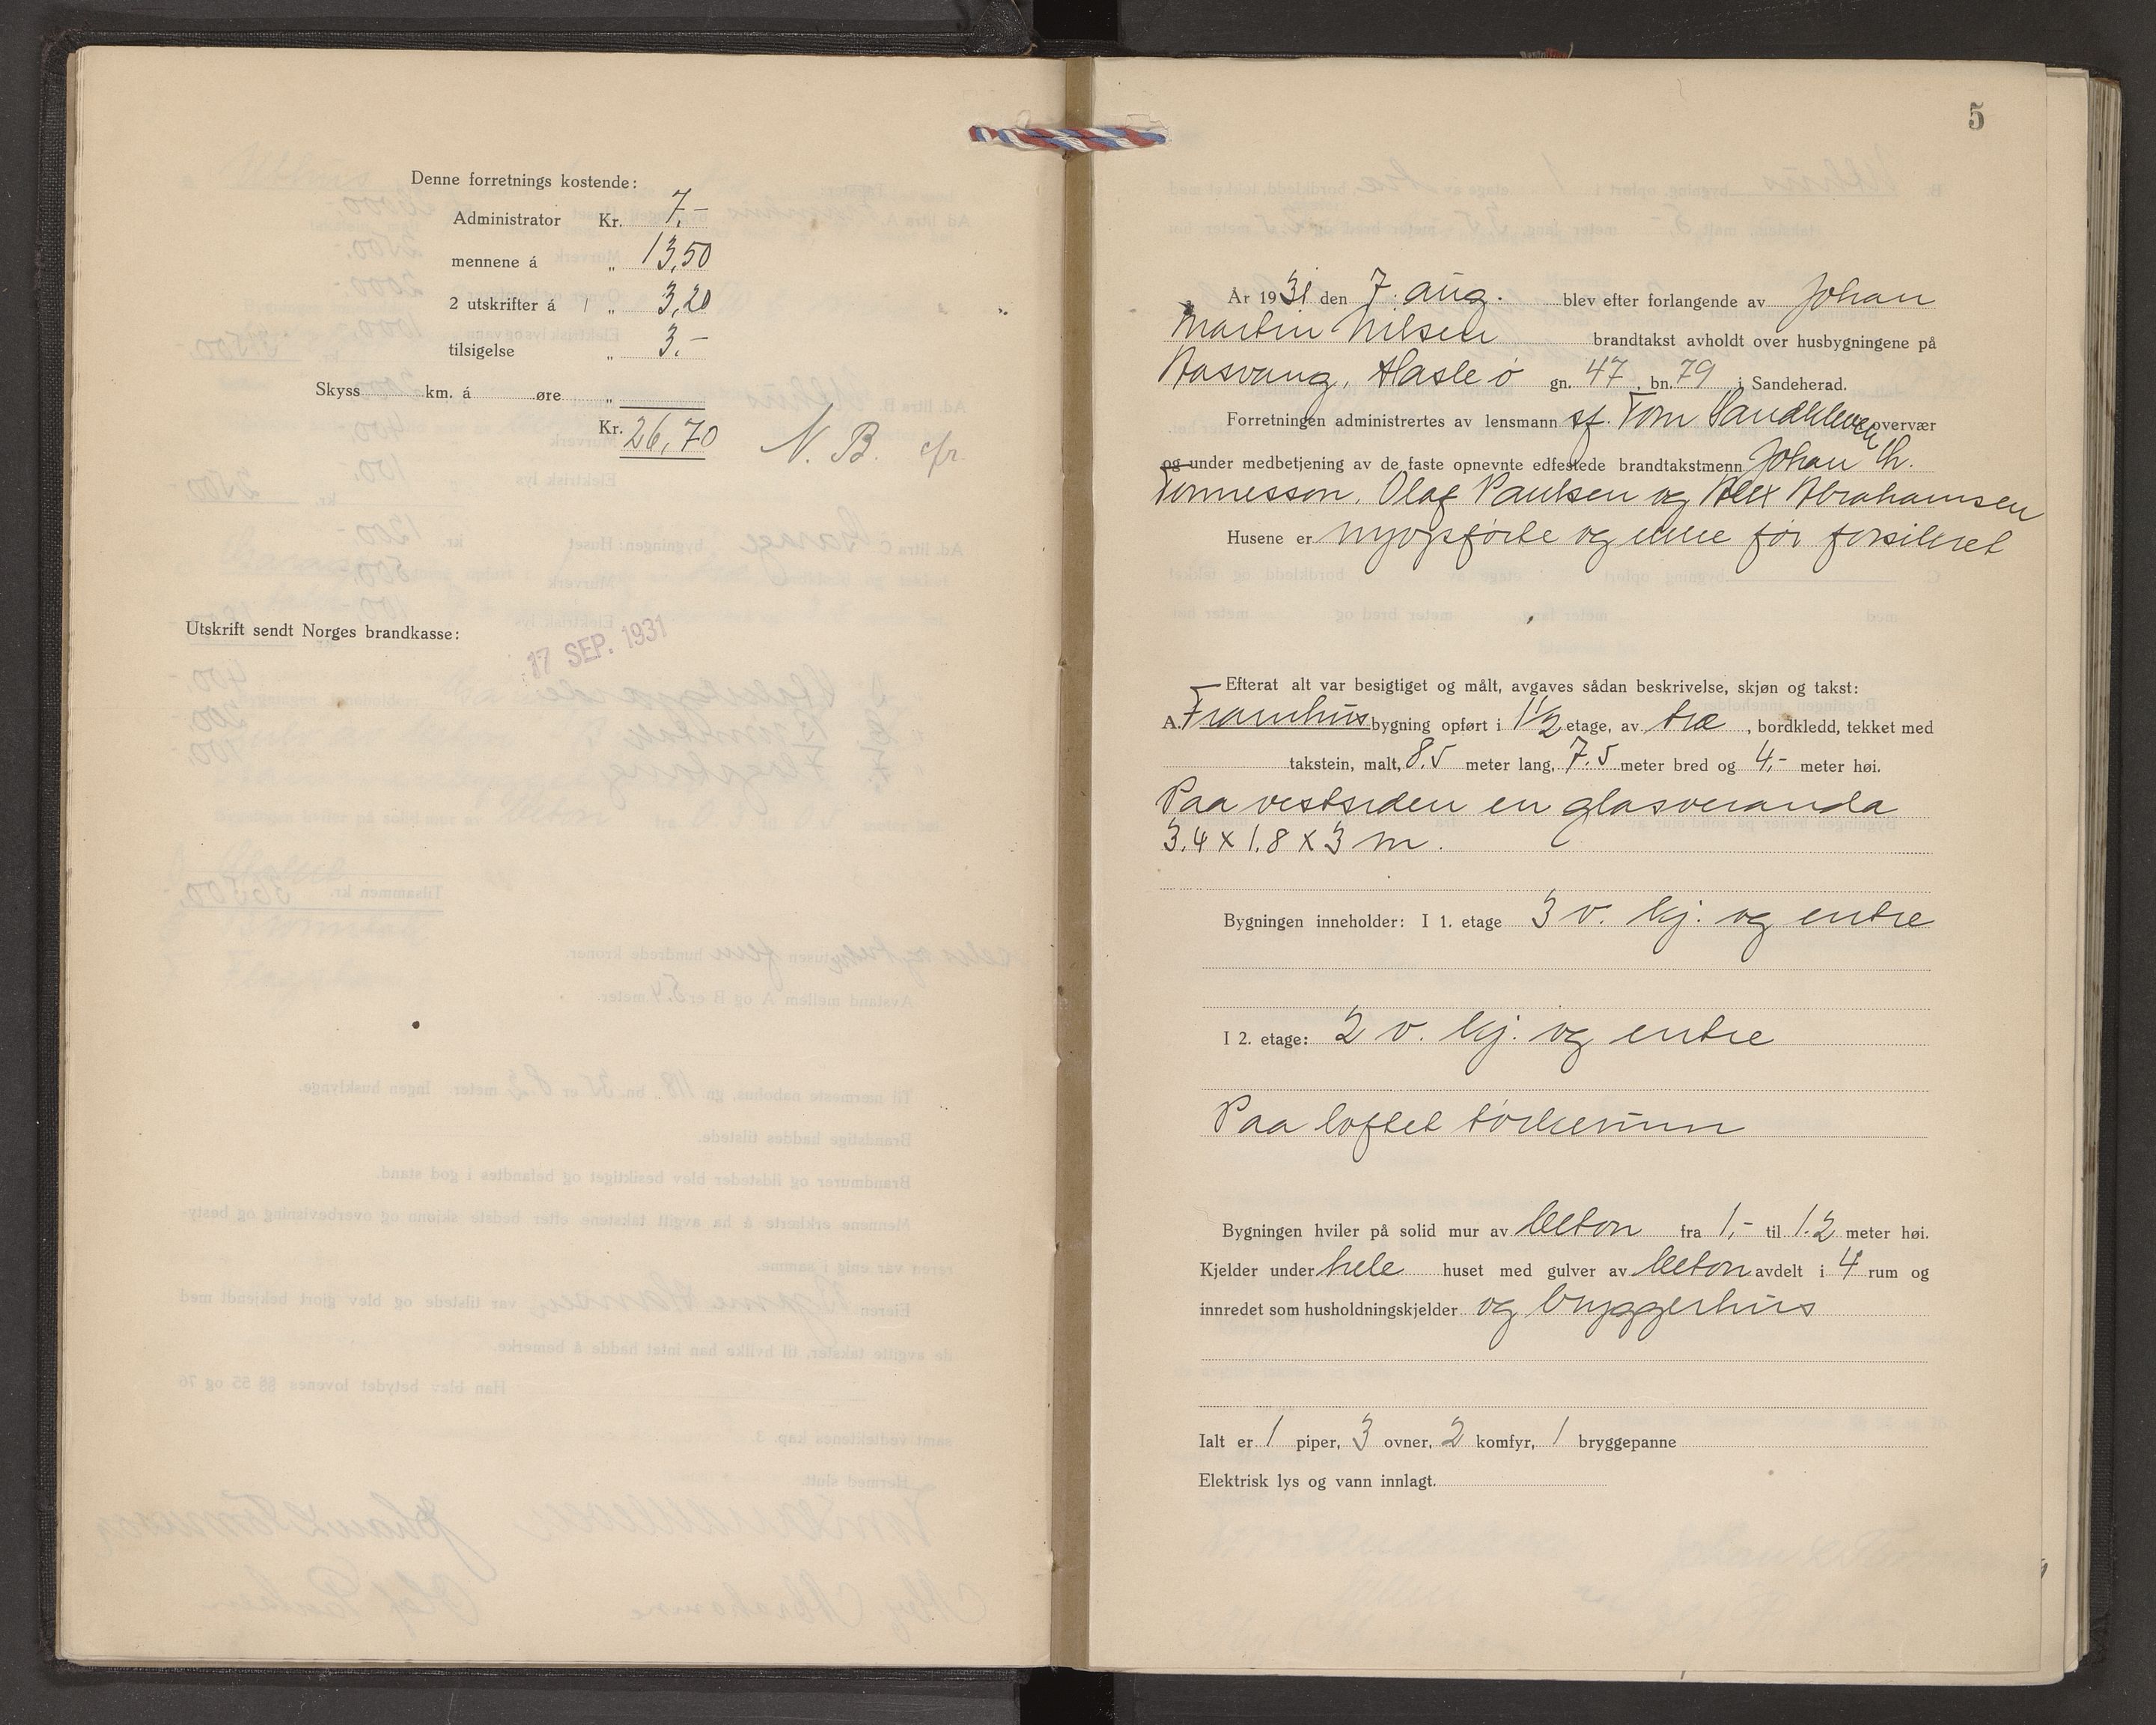 Denne forretnings kostende:
Administrator Kr. 7.-
mennene á „ 13,50
2 utskrifter á 1 „ 3,20
tilsigelse „ 3.-
Skyss km. á øre „
Kr. 26,70 N. B. cfr.
Utskrift sendt Norges brandkasse:
17 SEP. 1931
5
År 1931 den 7. aug. blev efter forlangende av Johan
Martin Nilsen brandtakst avholdt over husbygningene på
Aasvang, Hasle ø gn. 47, bn. 79 i Sandeherad.
Forretningen administrertes av lensmann sf. Tom overvær
og under medbetjening av de faste opnevnte edfestede brandtakstmenn Johan Th.
Tønnesson, Olaf Paulsen og Alex Abrahamsen
Husene er nyopførte og inne før forsikret
Efterat alt var besigtiget og målt, avgaves sådan beskrivelse, skjøn og takst:
A. Framhus bygning opført i 1½ etage, av træ, bordkledd, tekket med
takstein, malt, 8.5 meter lang, 7.5 meter bred og 4,- meter høi.
Paa vestsiden en glasveranda
3.4 x 1.8 x 3 m.
Bygningen inneholder: I 1. etage 3 v. kj. og entre
I 2. etage: 2 v. kj. og entre
Paa loftet tørkerum
Bygningen hviler på solid mur av beton fra 1,- til 1.2 meter høi.
Kjelder under hele huset med gulver av beton avdelt i 4 rum og
innredet som husholdningskjelder og bryggerhus
Ialt er 1 piper, 3 ovner, 2 komfyr, 1 bryggepanne
Elektrisk lys og vann innlagt.